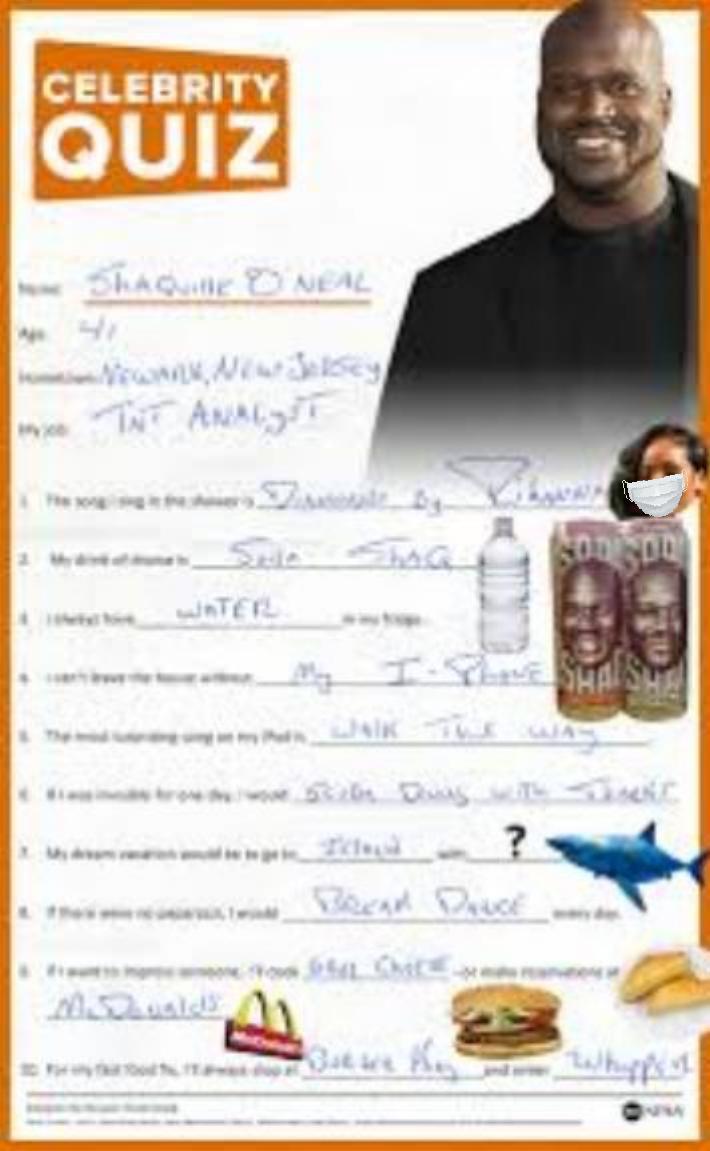 CELEBRITY
QUIZ
Name: SHAQUILLE O'NEAL
Age: 41
Hometown: NEWARK, NEW JERSEY
My job: TNT ANALYST
1. The song I sing in the shower is DIAMONDS By RIHANNA
2. My drink of choice is SODA SHAQ
3. I always have WATER in my fridge.
4. I can't leave the house without My I-PHONE
SODA SODA
SHAQ SHAQ
5. The most surprising song on my iPod is WALK THIS WAY
6. If I was invisible for one day, I would SCUBA DIVING WITH SHARKS
7. My dream vacation would be to go to ISLAND with ?
8. If there were no paparazzi, I would BREAK DANCE every day.
9. If I want to impress someone, I'll cook GRILL CHEESE or make reservations at
McDonalds
McDonald's
10. For my fast food fix, I'll always stop at BURGER King and order Whopper